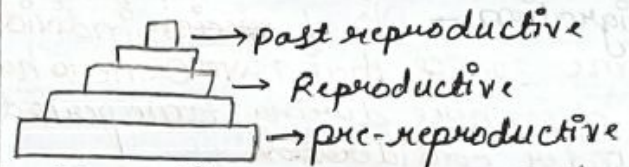 → past reproductive
→ Reproductive
→ pre-reproductive